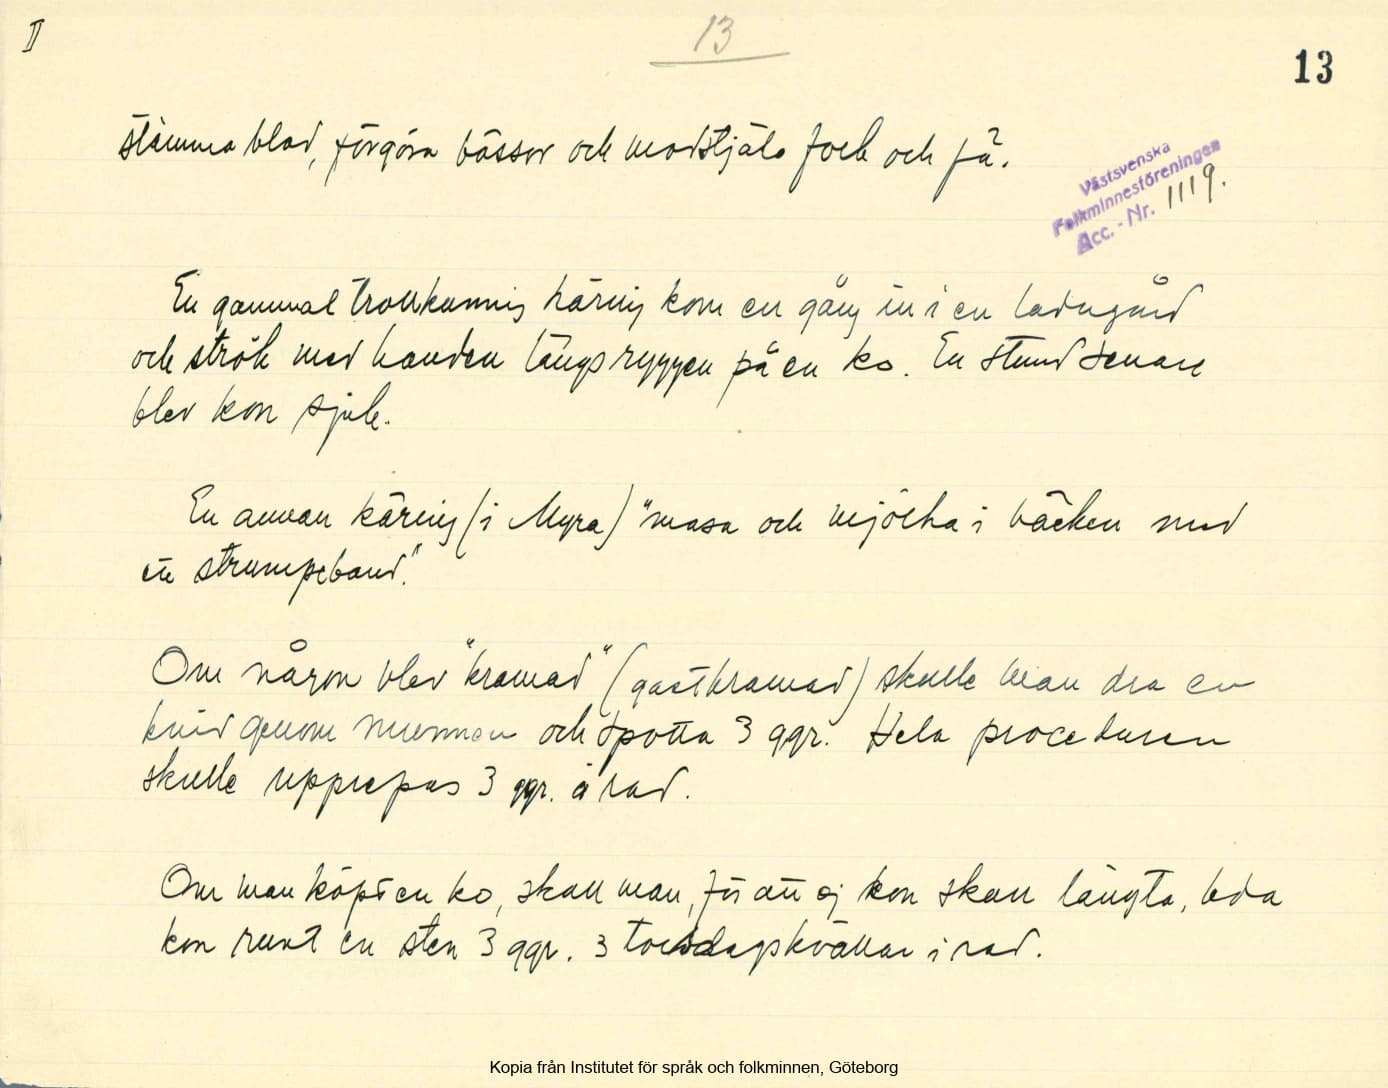 II
13
13
stämma blod, förgöra bössor och modstjäla folk och fä.
Västsvenska
Folkminnesföreningen
Acc. - Nr. 1119.
En gammal trollkunnig käring kom en gång in i en ladugård
och strök med handen längs ryggen på en ko. En stund senare
blev kon sjuk.
En annan käring (i Myra) "masa och mjölka i bäcken med
ett strumpeband".
Om någon blev "kramad" (gastkramad) skulle man dra en
kniv genom munnen och spotta 3 ggr. Hela proceduren
skulle upprepas 3 ggr. å rad.
Om man köpt en ko, skall man, för att ej kon skall längta, leda
kon runt en sten 3 ggr. 3 torsdagskvällar i rad.
Kopia från Institutet för språk och folkminnen, Göteborg